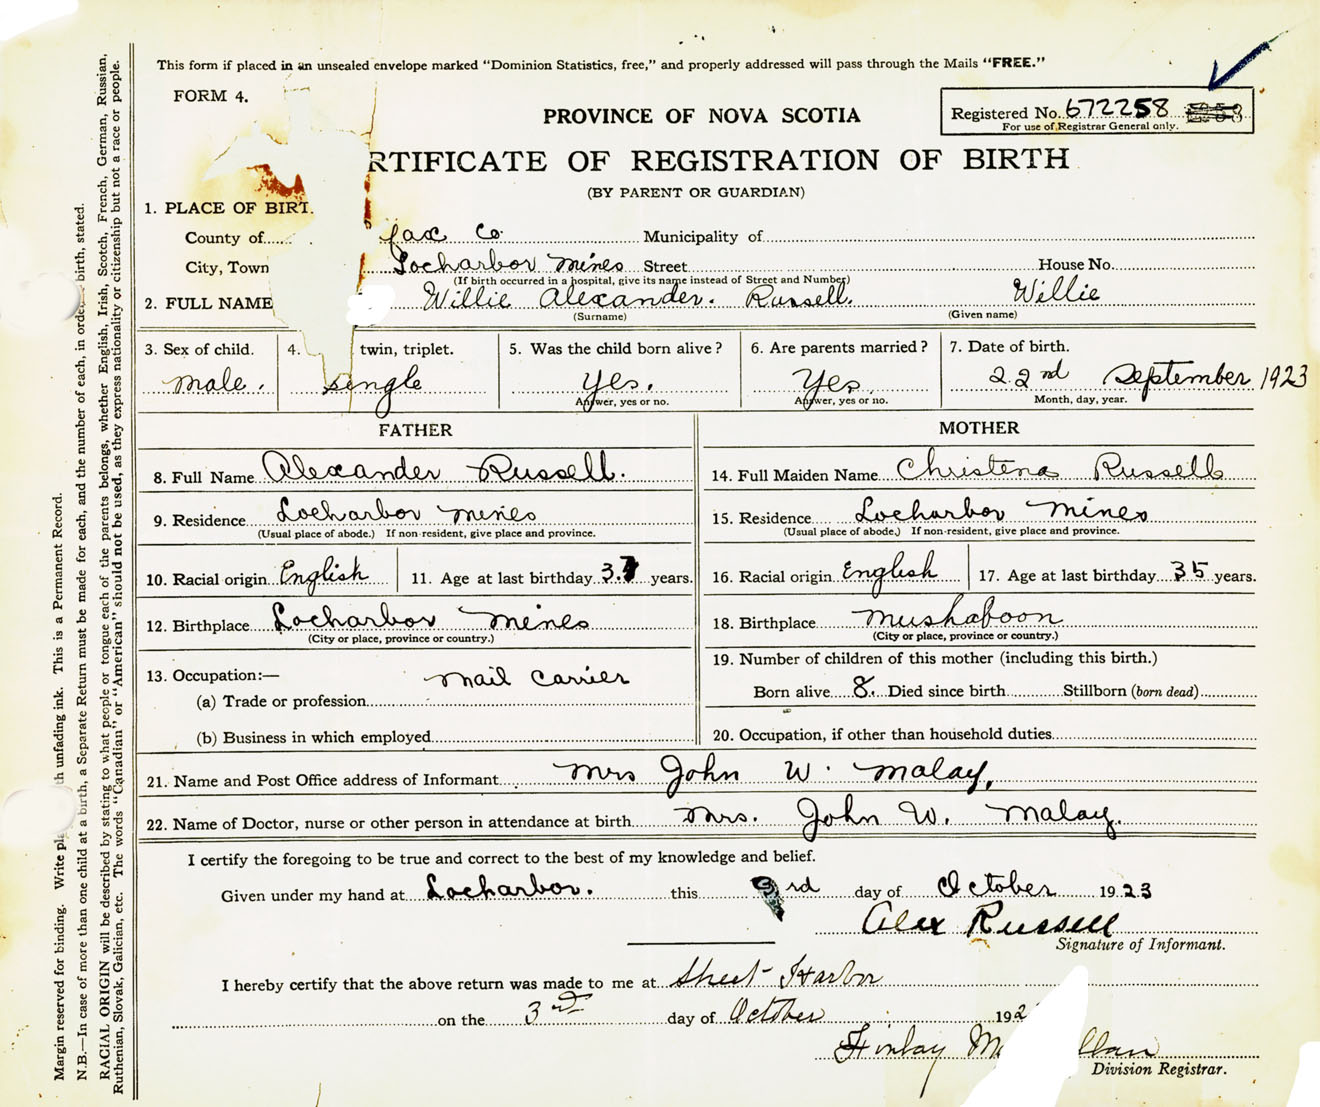 This form if placed in an unsealed envelope marked "Dominion Statistics, free," and properly addressed will pass through the Mails "FREE."
FORM 4.
PROVINCE OF NOVA SCOTIA
Registered No. 672258
For use of Registrar General only.
RTIFICATE OF REGISTRATION OF BIRTH
(BY PARENT OR GUARDIAN)
1. PLACE OF BIRT
County of fax Co. Municipality of
City, Town Locharbor Mines Street House No.
(If birth occurred in a hospital, give its name instead of Street and Number)
2. FULL NAME Willie Alexander. Russell. Willie
(Surname) (Given name)
3. Sex of child. 4. twin, triplet. 5. Was the child born alive? 6. Are parents married? 7. Date of birth.
male. single Yes. Yes 22nd September 1923
Answer, yes or no. Answer, yes or no. Month, day, year.
FATHER MOTHER
8. Full Name Alexander Russell. 14. Full Maiden Name Christena Russell
9. Residence Locharbor Mines 15. Residence Locharbor Mines
(Usual place of abode.) If non-resident, give place and province. (Usual place of abode.) If non-resident, give place and province.
10. Racial origin English 11. Age at last birthday 37 years. 16. Racial origin English 17. Age at last birthday 35 years.
12. Birthplace Locharbor Mines 18. Birthplace Mushaboon
(City or place, province or country.) (City or place, province or country.)
13. Occupation:— Mail Carrier 19. Number of children of this mother (including this birth.)
(a) Trade or profession Born alive 8. Died since birth Stillborn (born dead)
(b) Business in which employed 20. Occupation, if other than household duties
21. Name and Post Office address of Informant Mrs John W. Malay,
22. Name of Doctor, nurse or other person in attendance at birth Mrs. John W. Malay.
I certify the foregoing to be true and correct to the best of my knowledge and belief.
Given under my hand at Locharbor. this 3rd day of October 1923
Alex Russell
Signature of Informant.
I hereby certify that the above return was made to me at Sheet Harbor
on the 3rd day of October 192
Finlay M llan
Division Registrar.
Margin reserved for binding. Write pl th unfading ink. This is a Permanent Record.
N.B.—In case of more than one child at a birth, a Separate Return must be made for each, and the number of each, in order birth, stated.
RACIAL ORIGIN will be described by stating to what people or tongue each of the parents belongs, whether English, Irish, Scotch, French, German, Russian,
Ruthenian, Slovak, Galician, etc. The words "Canadian" or "American" should not be used, as they express nationality or citizenship but not a race or people.